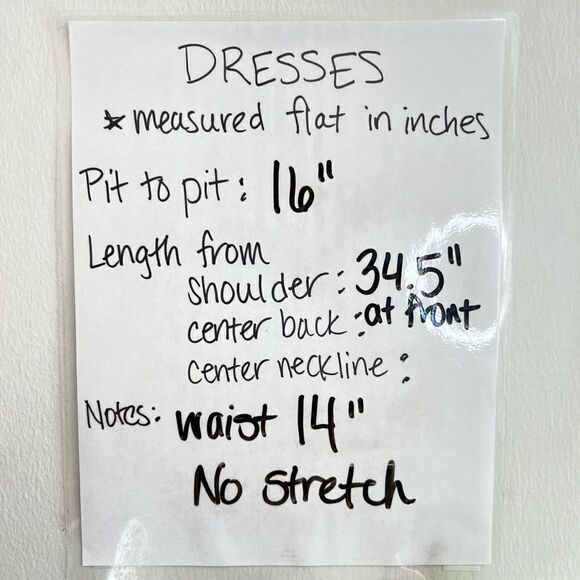 DRESSES
* measured flat in inches
Pit to pit: 16"
Length from
shoulder: 34.5"
center back: at front
center neckline:
Notes: waist 14"
No stretch